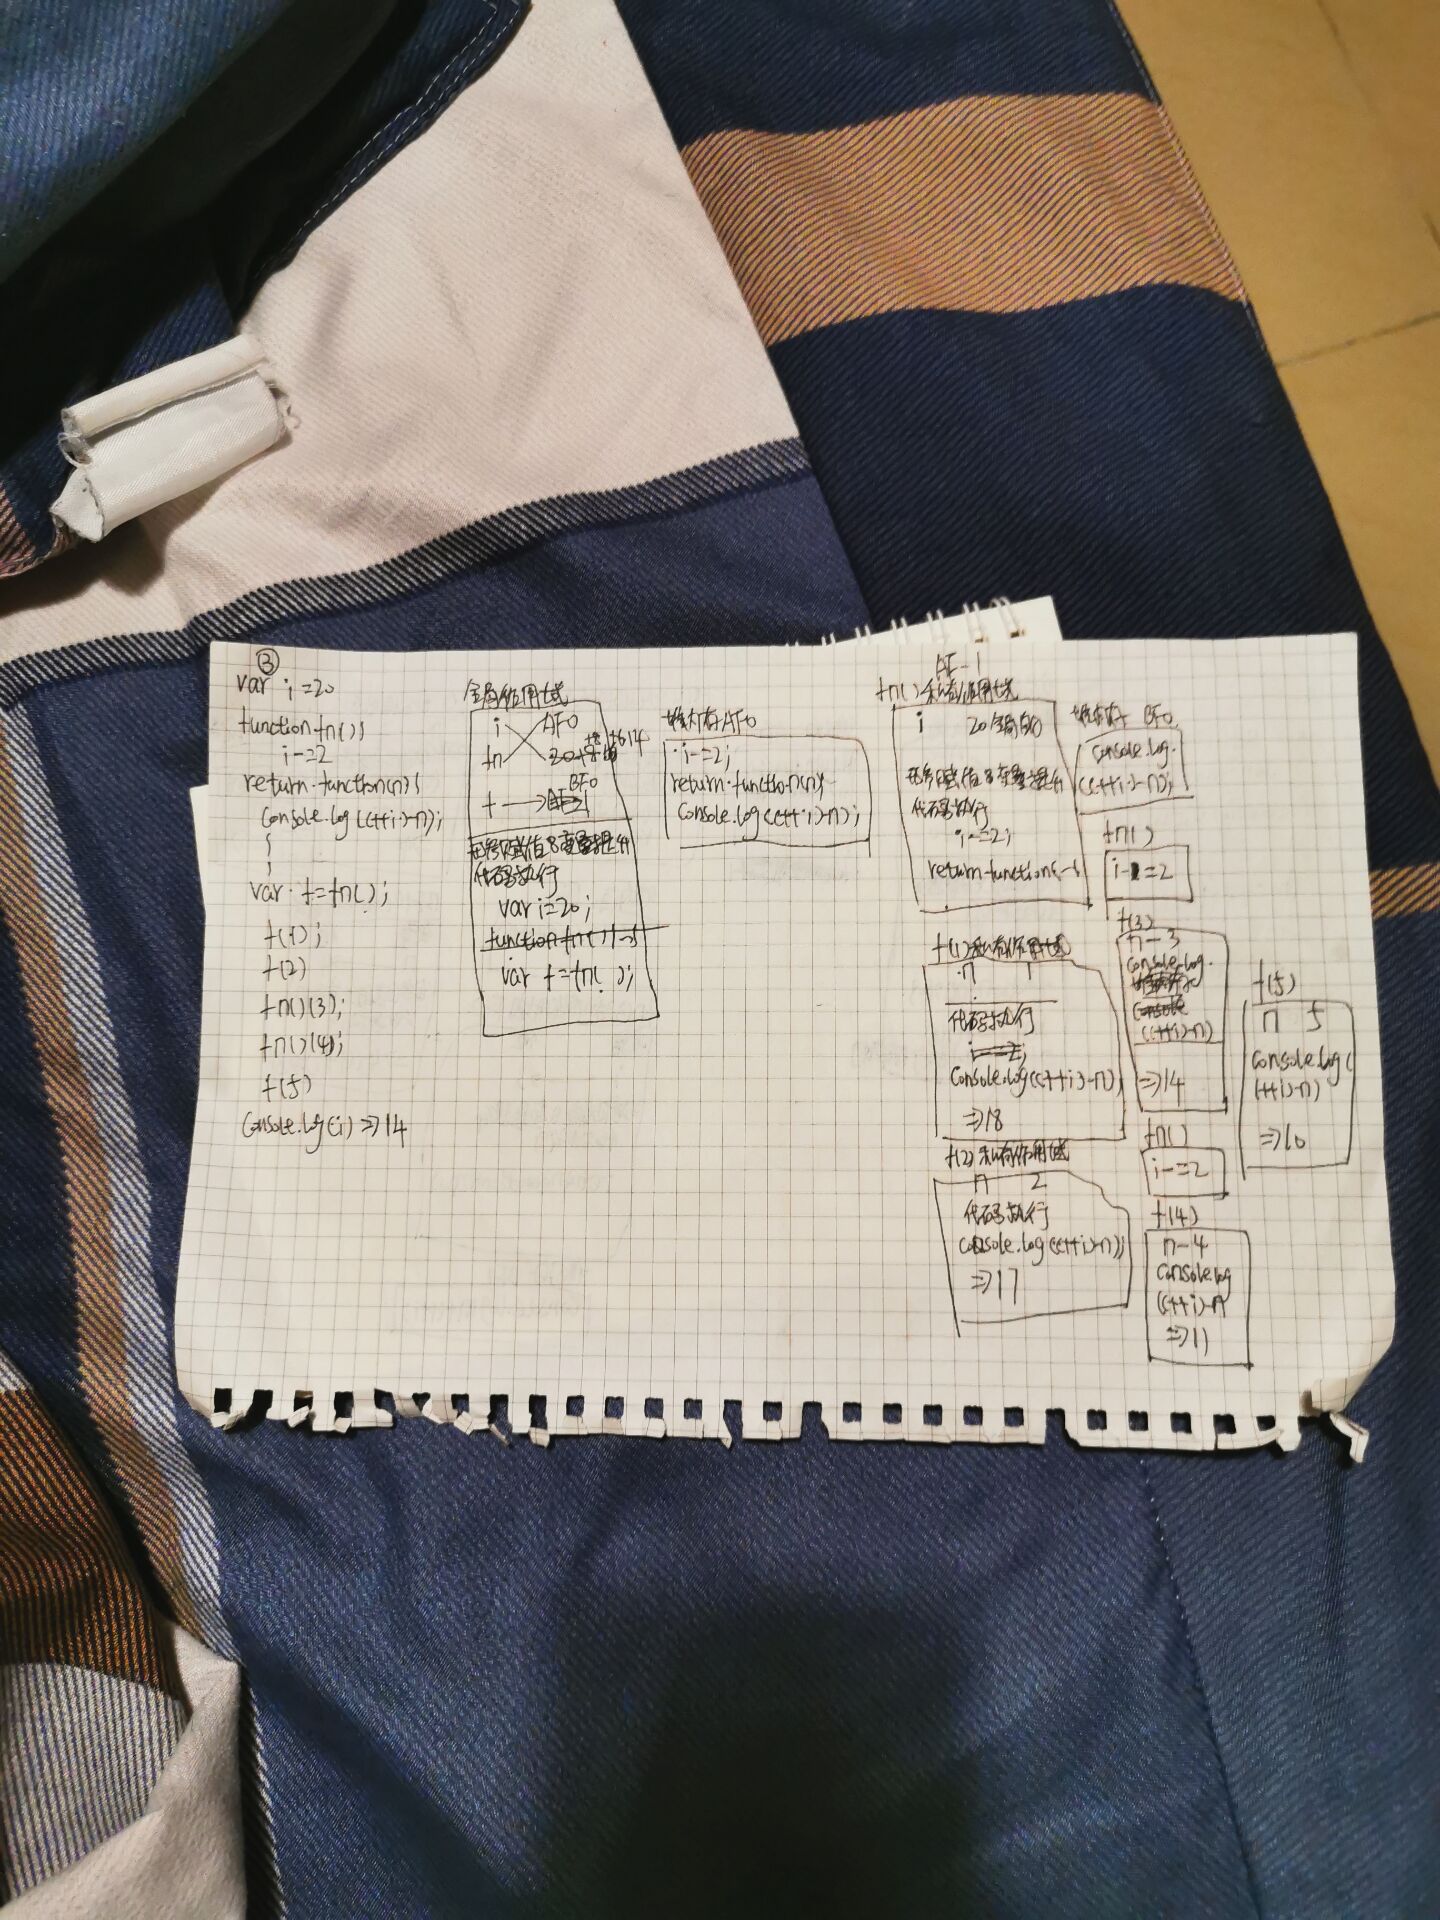 ③
var i=20
function fn(){
i-=2
return function(n){
console.log((++i)-n);
}
}
var f=fn();
f(1);
f(2)
fn()(3);
fn()(4);
f(5)
console.log(i)=>14
全局作用域
i AF0
fn 20
BF0
f
形参赋值&变量提升
代码执行
var i=20;
function fn(){~}
var f=fn();
堆内存AF0
i-=2;
return function(n){
console.log((++i)-n);
AF-1
fn()私有作用域
i 20全局的
形参赋值&变量提升
代码执行
i-=2;
return function{~}
f(1)私有作用域
n 1
代码执行
console.log((++i)-n)
=>18
f(2)私有作用域
n 2
代码执行
console.log((++i)-n));
=>17
堆内存 BF0
console.log.
((++i)-n);
fn()
i-=2
f(3)
n-3
console.log.
((++i)-n)
=>14
fn()
i-=2
f(4)
n-4
console.log
(++i)-n
=>11
f(5)
n 5
console.log(
(++i)-n)
=>10